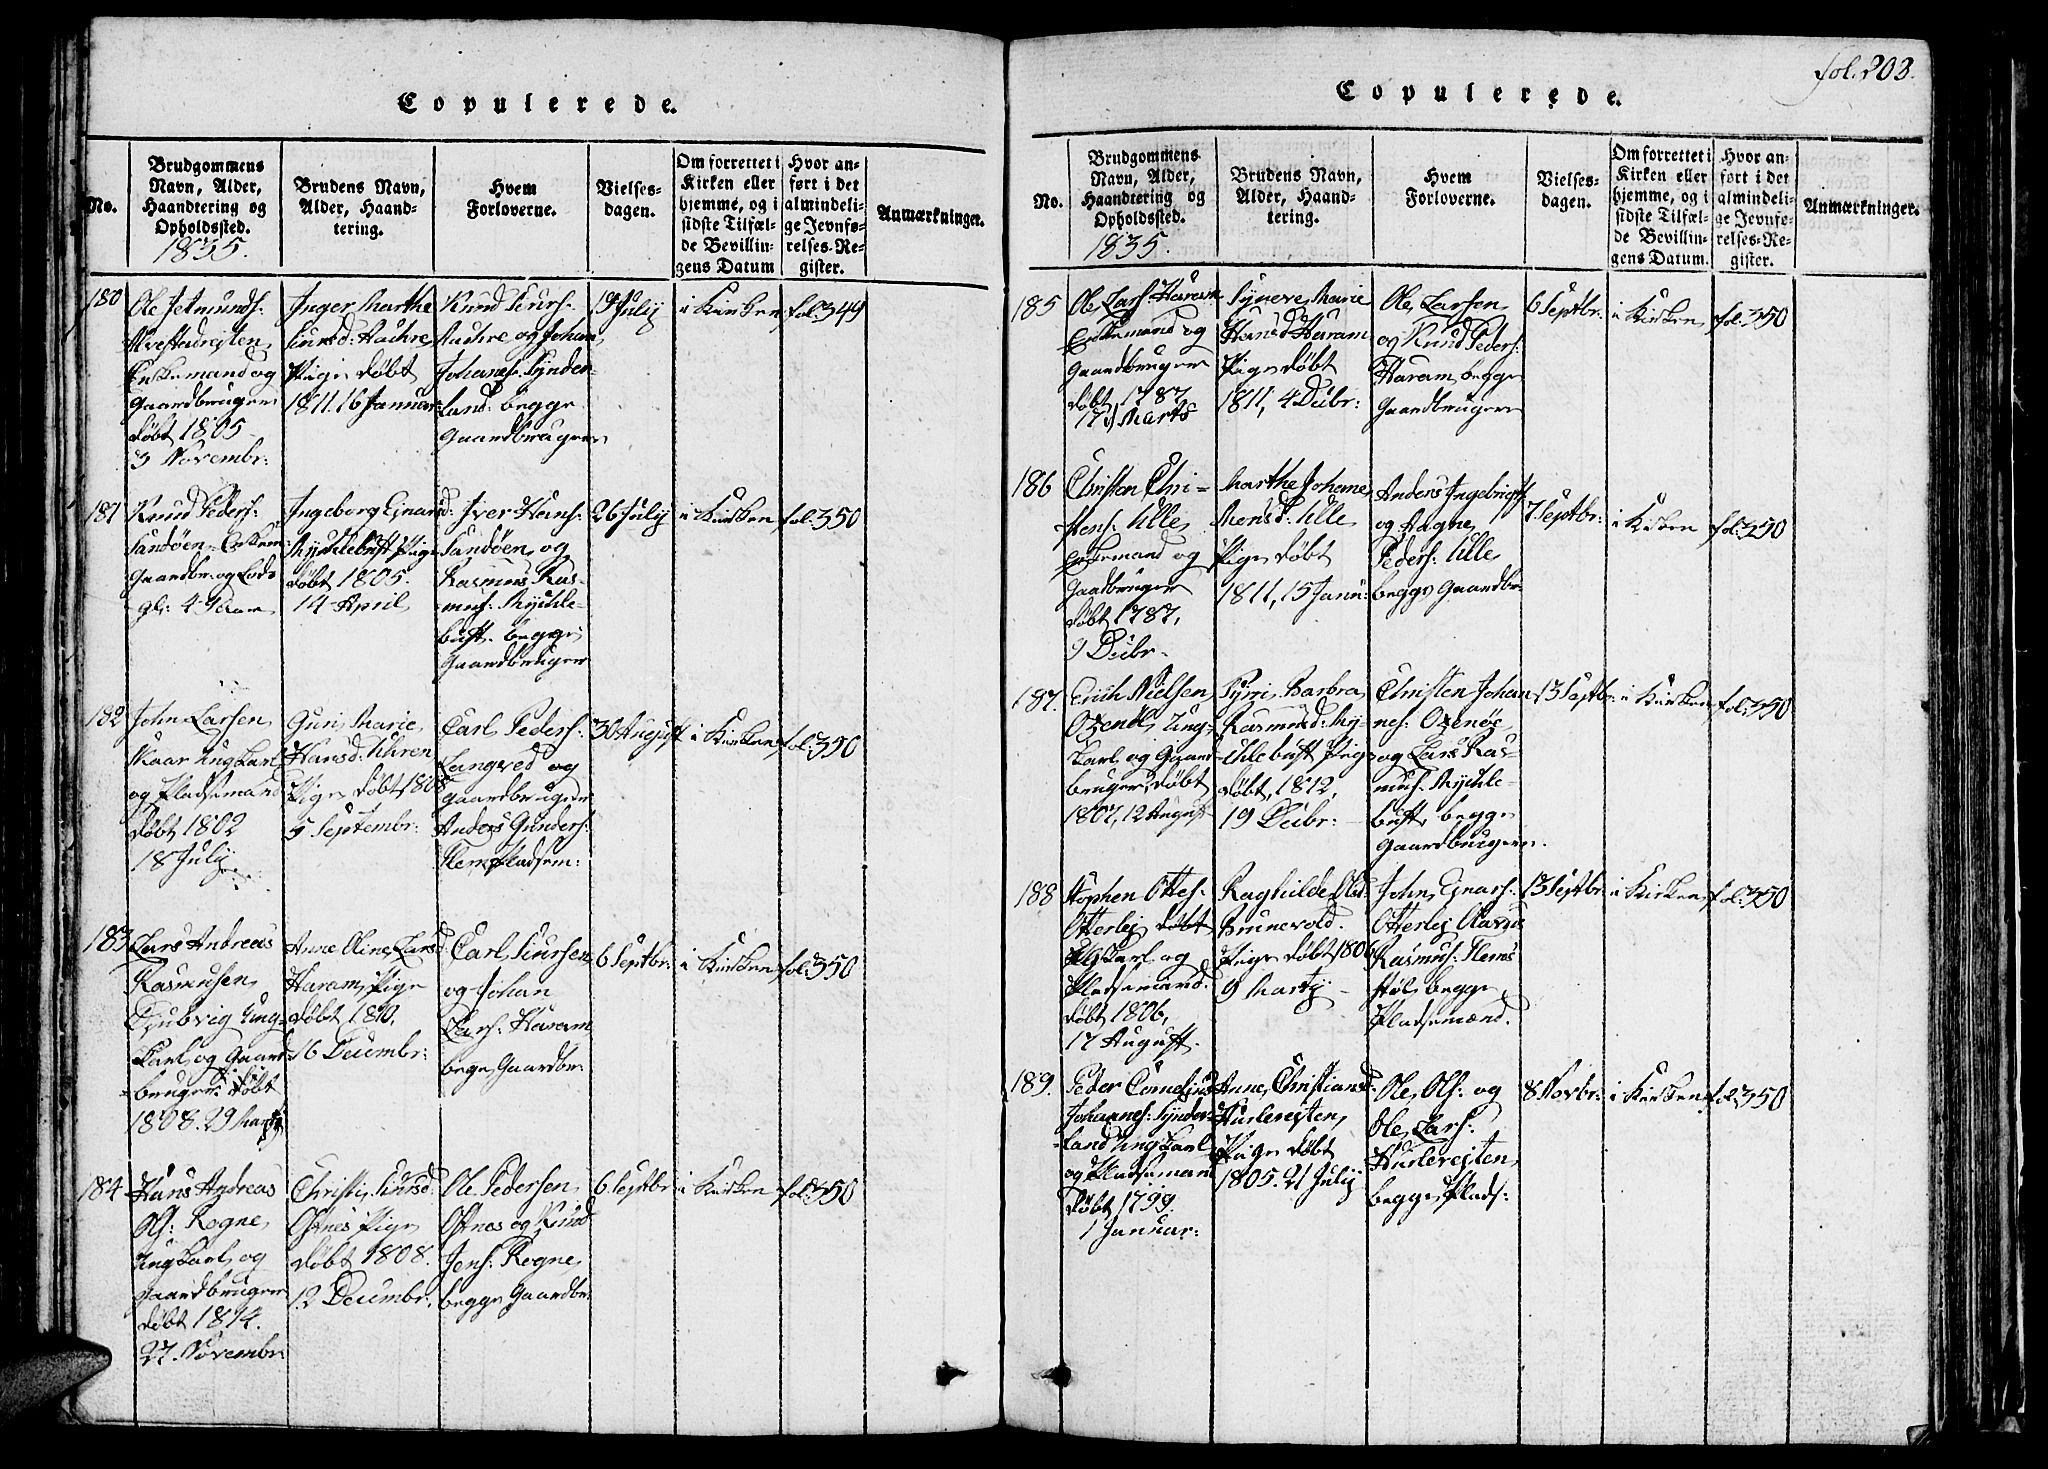 Copulerede.
No.
Brudgommens Navn, Alder, Haandtering og Opholdssted.
1835.
Brudens Navn, Alder, Haandtering.
Hvem Forloverne.
Vielsesdagen.
Om forrettet i Kirken eller hjemme, og i sidste Tilfælde Bevillingens Datum
Hvor anført i det almindelige Jevnførelses-Register.
Anmærkninger.
180
Ole Jetmunds:
Enkemand og
Gaardbruger
døbt 1805
3 Novembr:
Inger Marthe
Pige døbt
1811. 16 Januar
Knud Siurs:
og Johan
Johanes: Synder-
land. begge
Gaardbruger
19 July
i Kirken
fol: 349
181
Knud Peders:
Sandøen
døbt 1805.
14 April
Ingeborg
Myklebust Pige
Iver Hans:
Sandøen og
Rasmus Ras-
mus: Mykle-
bust. begge
Gaardbruger
26 July
i Kirken
fol: 350
182
John Larsen
Skaar Ungkarl
og Pladsemand
døbt 1802
18 July
Guri Marie
Hansd: Uhren
Pige døbt 1808
5 Septembr:
Carl Peders:
Langved og
Gaardbruger
Anders Gunders:
Pladsem:
30 August
i Kirken
fol: 350
183
Lars Andreas
Rasmusen
Ungkarl og Gaard-
bruger. døbt
1808. 29 Martj
Anne Oline Larsd
Haram Pige
døbt 1810,
16 Decembr:
Carl Siursen
og Johan
Lars: Haram
begge Gaardbr
6 Septbr:
i Kirken
fol: 350
184
Hans Andreas
Ols: Rogne
Ungkarl og
Gaardbruger
døbt 1814.
27. Novembr
Christj Siursd
Ostnes Pige
døbt 1808.
12 Decembr.
Ole Pedersen
Ostnes og Knud
Jens: Rogne
begge Gaardbr
6 Septbr
i Kirken
fol: 350
fol. 203.
Copulerede.
No.
Brudgommens Navn, Alder, Haandtering og Opholdssted.
1835.
Brudens Navn, Alder, Haandtering.
Hvem Forloverne.
Vielsesdagen.
Om forrettet i Kirken eller hjemme, og i sidste Tilfælde Bevillingens Datum.
Hvor anført i det almindelige Jevnførelses-Register.
Anmærkninger.
185
Ole Lars: Haram
Enkemand og
Gaardbruger
døbt 1787
17 Marts
Synneve Marie
Hansd Haram
Pige døbt
1811, 4 Decbr:
Ole Larsen
og Knud Peders:
Haram begge
Gaardbruger
6 Septbr:
i Kirken
fol: 350
186
Christen Chri-
stens: Ulle
Enkemand og
Gaardbruger
døbt 1787,
9 Decbr.
Marthe Johanne
Monsd: Ulle
Pige døbt
1811, 15 Janu:
Anders Ingebrigts
og Aagne
Peders: Ulle
begge Gaardbr
7 Septbr:
i Kirken
fol: 350
187.
Erich Nielsen
Ung-
karl og Gaard-
bruger, døbt
1807, 12 August
Syrri Barbra
Rasmusd: My-
klebust Pige
døbt, 1812,
19 Decbr:
Christen Johan
nes:
og Lars Ras-
mus: Mykle-
bust, begge
Gaardbrugere.
13 Septbr:
i Kirken
fol: 350
188
Stephen Ottes:
Otterlej døbt
Ungkarl og
Pladsemand.
døbt 1806,
17 August.
Raghilde Olsd:
Brunevold.
Pige døbt 1806
9 Martj
John Einars:
Otterlej
Rasmus: Hems
støl begge
Pladsemænd.
13 Septbr:
i Kirken
fol: 350
189.
Peder Cornelius
Johannes: Synder-
land Ungkarl
og Pladsemand
døbt 1799.
1 Januar:
Anne Christiansd:
Hurlerejten,
Pige døbt
1805. 21 July
Ole Ols: og
Ole Lars:
Hurlerejten
begge Plads:
8 Novbr:
i Kirken
fol: 350